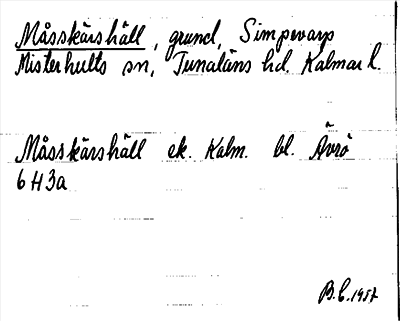 Måsskärshäll, grund, Simpevarp
Misterhults sn, Tunaläns hd, Kalmar l.
Måsskärshäll ek. Kalm. bl. Ävrö
6H3a
B.C. 1957